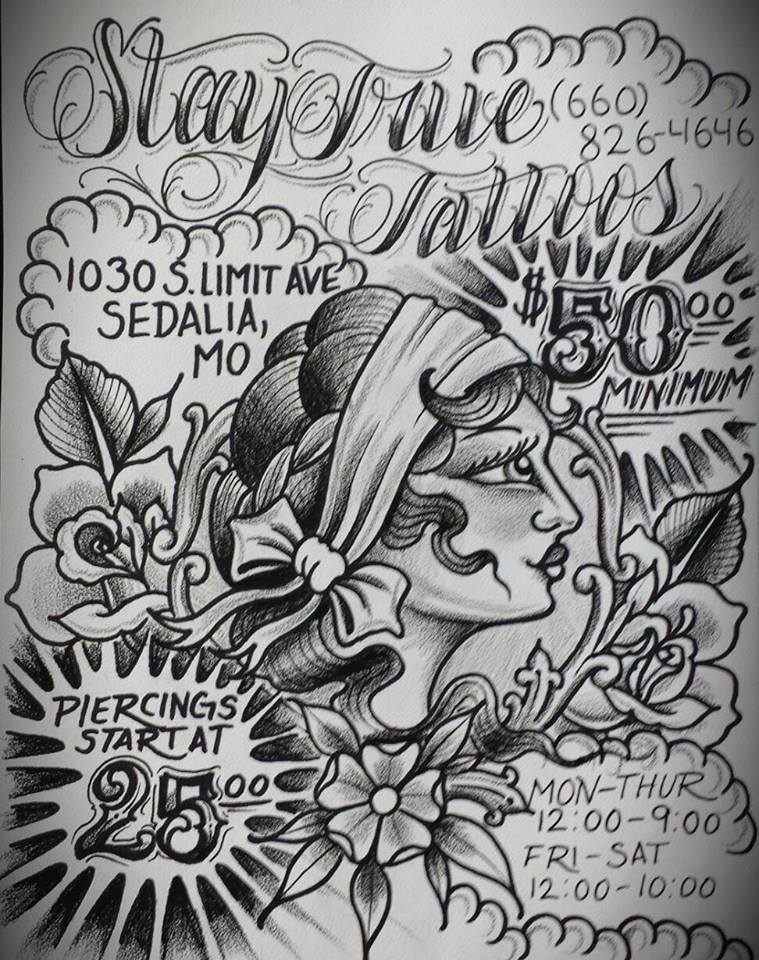 Stay True
(660)
826-4646
Tattoos
1030 S. LIMIT AVE
SEDALIA,
MO
$50.00
MINIMUM
PIERCINGS
START AT
25.00
MON-THUR
12:00-9:00
FRI-SAT
12:00-10:00